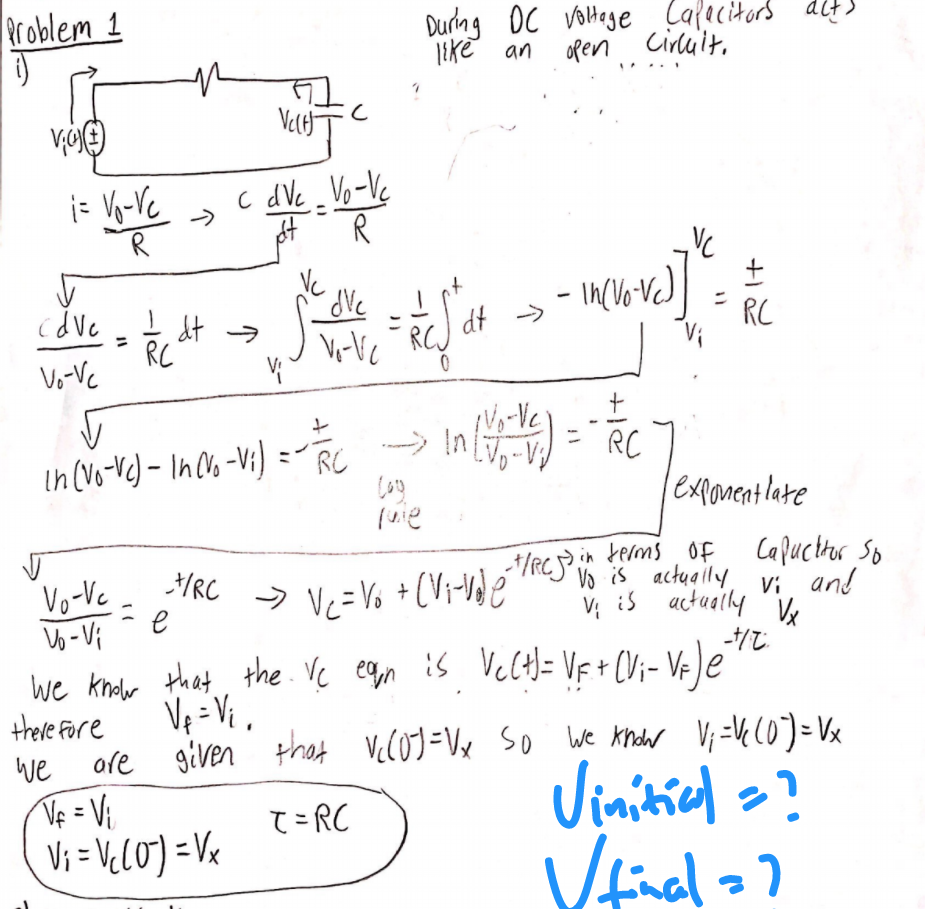 Problem 1
During DC Voltage Capacitors acts
like an open circuit.
i)
Vi(t) Vc(t) C
i = (V0-Vc)/R → C dVc/dt = (V0-Vc)/R
C dVc/(V0-Vc) = 1/RC dt → ∫_{Vi}^{Vc} dVc/(V0-Vc) = 1/RC ∫_0^t dt → -ln(V0-Vc)]_{Vi}^{Vc} = t/RC
ln(V0-Vc) - ln(V0-Vi) = -t/RC → ln((V0-Vc)/(V0-Vi)) = -t/RC
Log
rule
exponentiate
(V0-Vc)/(V0-Vi) = e^{-t/RC} → Vc = V0 + (Vi-V0)e^{-t/RC}
in terms of Capacitor so
V0 is actually Vi and
Vi is actually Vx
We know that the Vc eqn is Vc(t) = VF + (Vi - VF)e^{-t/τ}
therefore Vf = Vi.
We are given that Vc(0^-) = Vx so we know Vi = Vc(0^-) = Vx
Vf = Vi τ = RC
Vi = Vc(0^-) = Vx
Vinitial = ?
Vfinal = ?